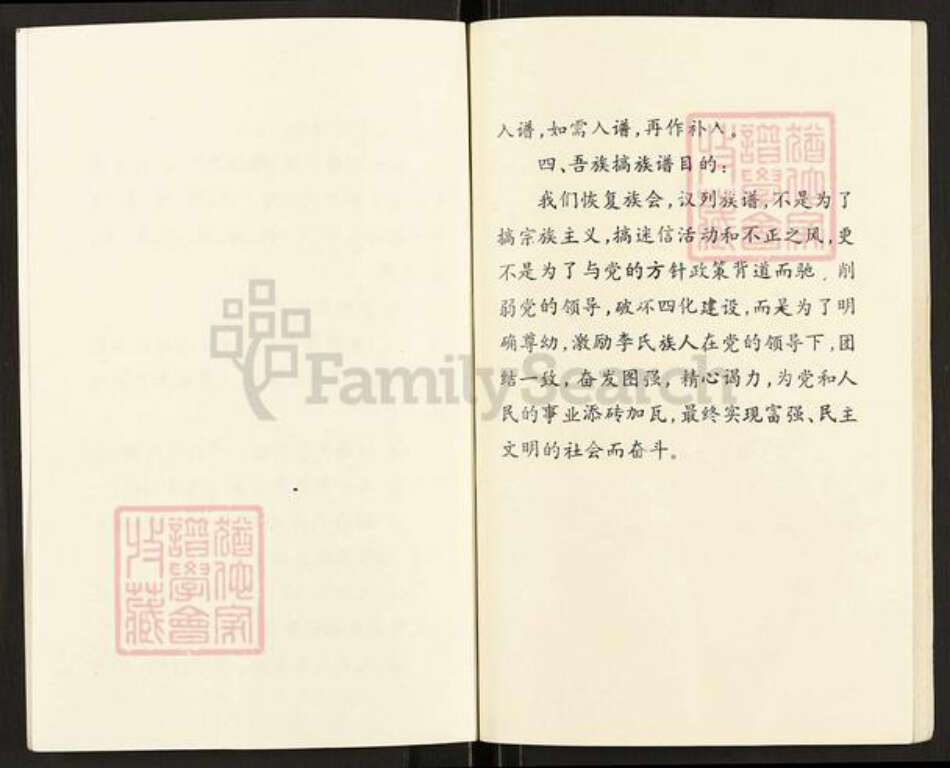 入谱，如需入谱，再作补入。
四、吾族搞族谱目的：
我们恢复族会，议列族谱，不是为了
搞宗族主义，搞迷信活动和不正之风，更
不是为了与党的方针政策背道而驰，削
弱党的领导，破坏四化建设，而是为了明
确尊幼，激励李氏族人在党的领导下，团
结一致，奋发图强，精心谒力，为党和人
民的事业添砖加瓦，最终实现富强、民主
文明的社会而奋斗。
FamilySearch
猶他家
譜學會
收藏
猶他家
譜學會
收藏